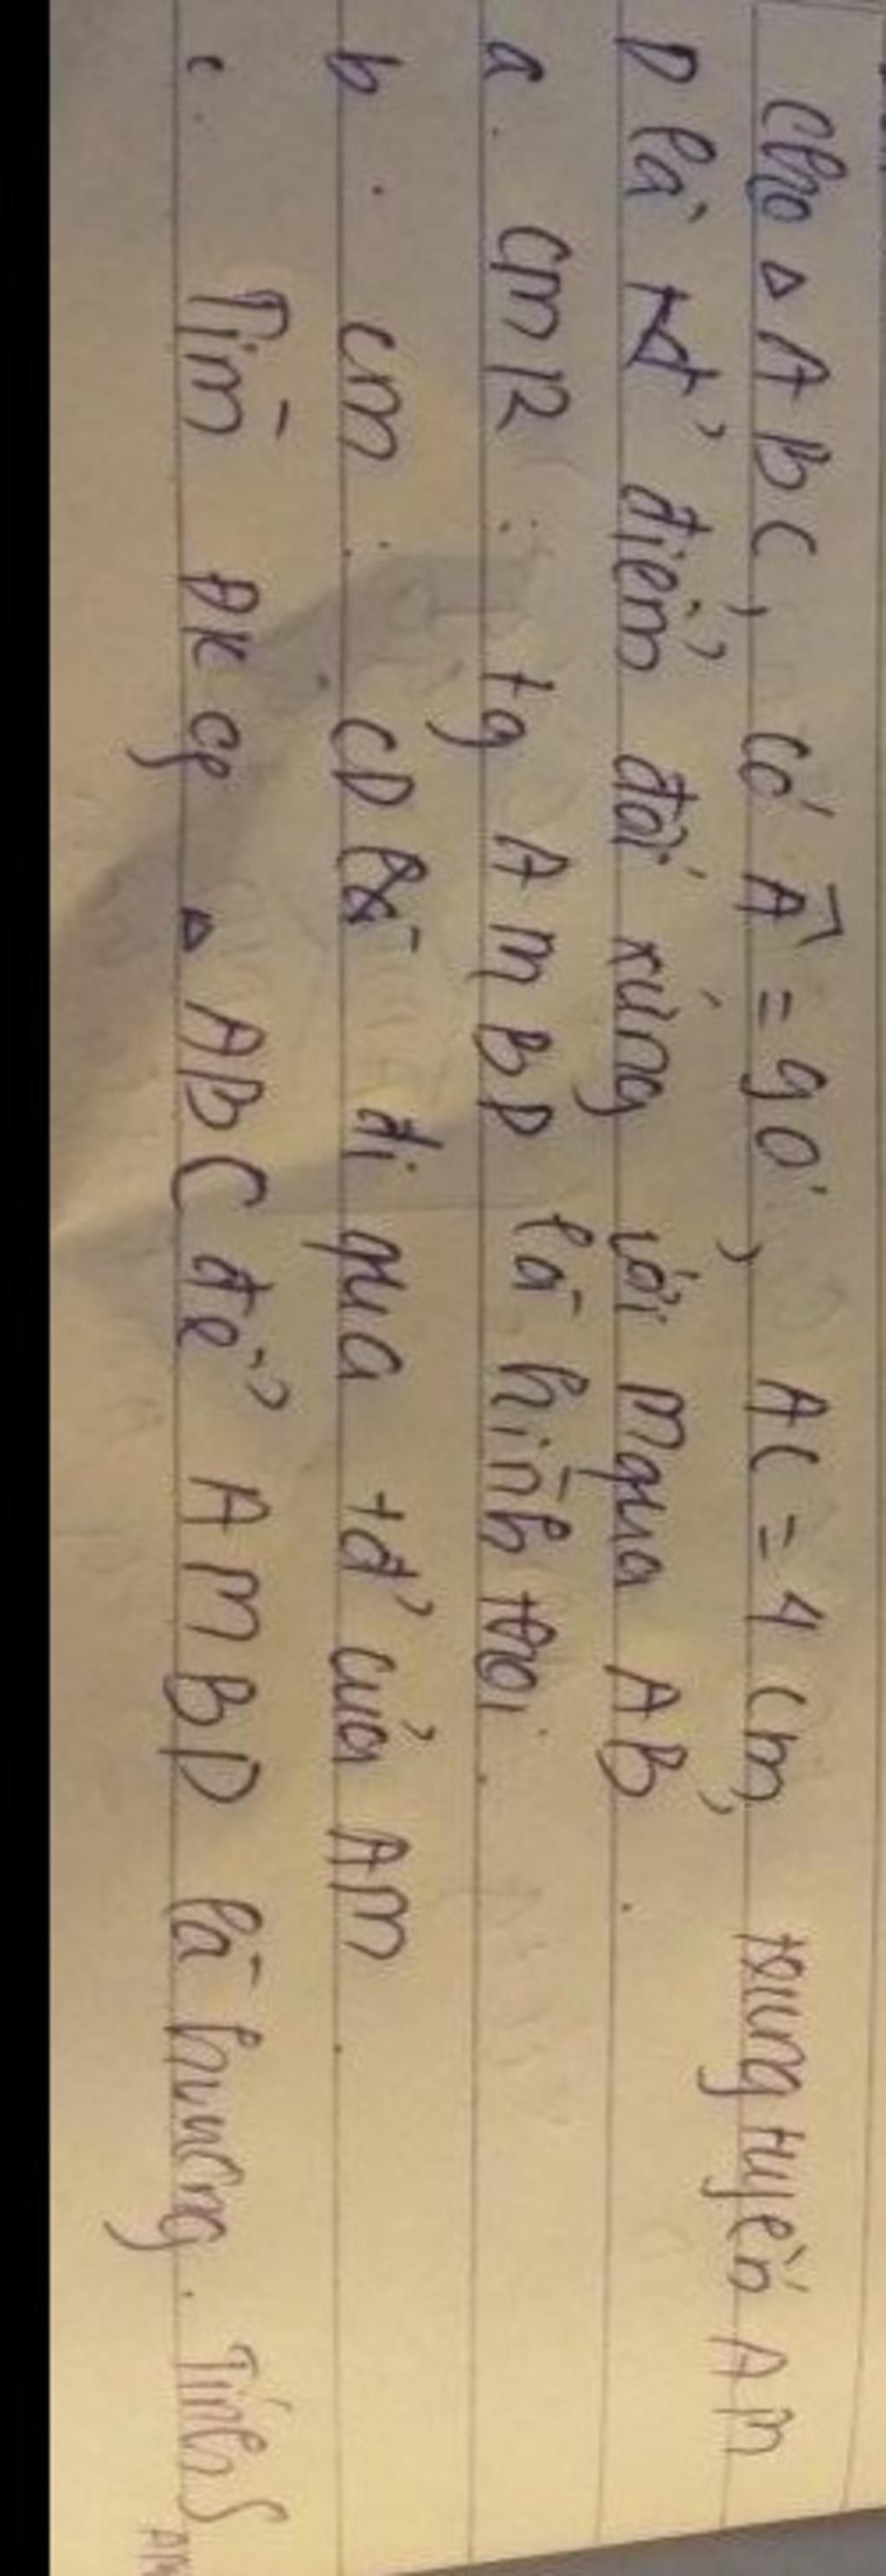 Cho △ABC, có Â = 90°, AC = 4 cm, trung tuyến AM
D là điểm đối xứng với M qua AB.
a. CMR: tg AMBD là hình thoi.
b. CM: CD đi qua tđ' của AM.
c. Tìm ĐK của △ABC để AMBD là h.vuông. Tính S